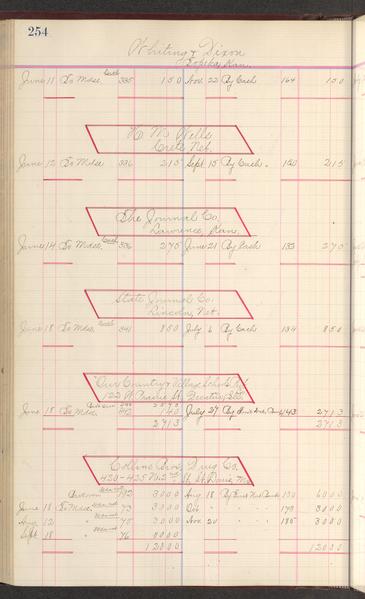 254
Whiting & Dixon
Topeka, Kan.
June 11 To Mdse. Cash 335 150 Nov. 22 By Cash 164 150
H. M. Wells
Crete Neb.
June 12 To Mdse 336 215 Sept. 15 By Cash. 120 215
The Journal Co.
Lawrence, Kan.
June 14 To Mdse. 336 275 June 21 By Cash 133 275
State Journal Co.
Lincoln, Neb.
June 18 To Mdse. 341 850 July 6 By Cash 134 850
Our Country & Village Schools
122 W. Prairie St. Decatur, Ills.
June 18 To Mdse. 342 140 July 27 By 143 2713
2713 2713
Collins Bros. Drug Co.
420-425 No. 2nd St. St. Louis, Mo
3000 Aug. 18 By 130 6000
June 18 To Mdse. 73 3000 Oct. " 179 3000
Aug. 12 " 75 3000 Nov. 20 " 185 3000
Sept. 18 " 76
12000 12000